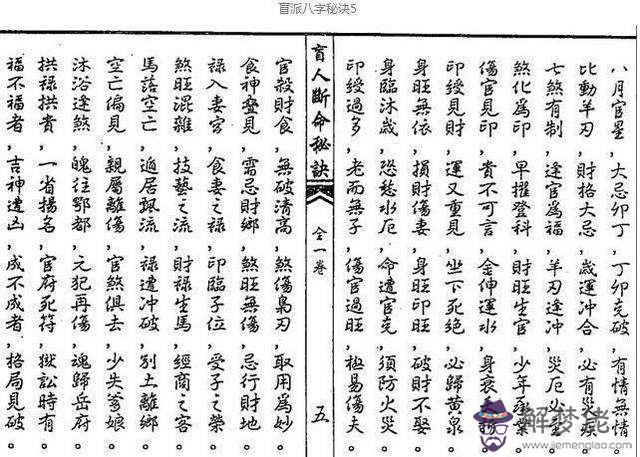 盲派八字秘诀5
八月官星，大忌卯丁，丁卯克破，有情無情。
比動羊刃，財格大忌，歲運冲合，必有災疾。
七煞有制，逢官爲福，羊刃逢冲，災厄
煞化爲印，早擢登科，財旺生官，少年承業。
傷官見印，貴不可言，金伸運水，身衰
印綬見財，運又重見，坐下死絕，必歸黄泉。
身旺無依，損財傷妻，身旺印旺，破財不娶。
身臨沐歲，恐愁水厄，命遭官克，須防火災。
印綬過多，老而無子，傷官過旺，極易傷夫。
盲人斷命秘訣
全一卷
五
官殺財食，無破清高，煞傷梟刃，取用爲妙。
食神疊見，需忌財鄉，煞旺無傷，忌行財地。
祿入妻宮，食妻之祿，印臨子位，受子之榮。
煞旺混雜，技藝之流，財祿生馬，經商之客。
馬落空亡，遁居飄流，祿遭冲破，別土離鄉。
空亡偏見，親屬離傷，官煞俱去，少失爹娘。
沐浴逢煞，魄往酆都，元犯再傷，魂歸岳府。
拱祿拱貴，一省揚名，官府死符，獄訟時有。
福不福者，吉神遭凶，成不成者，格局見破。
解梦佬
www.jiemenglao.com